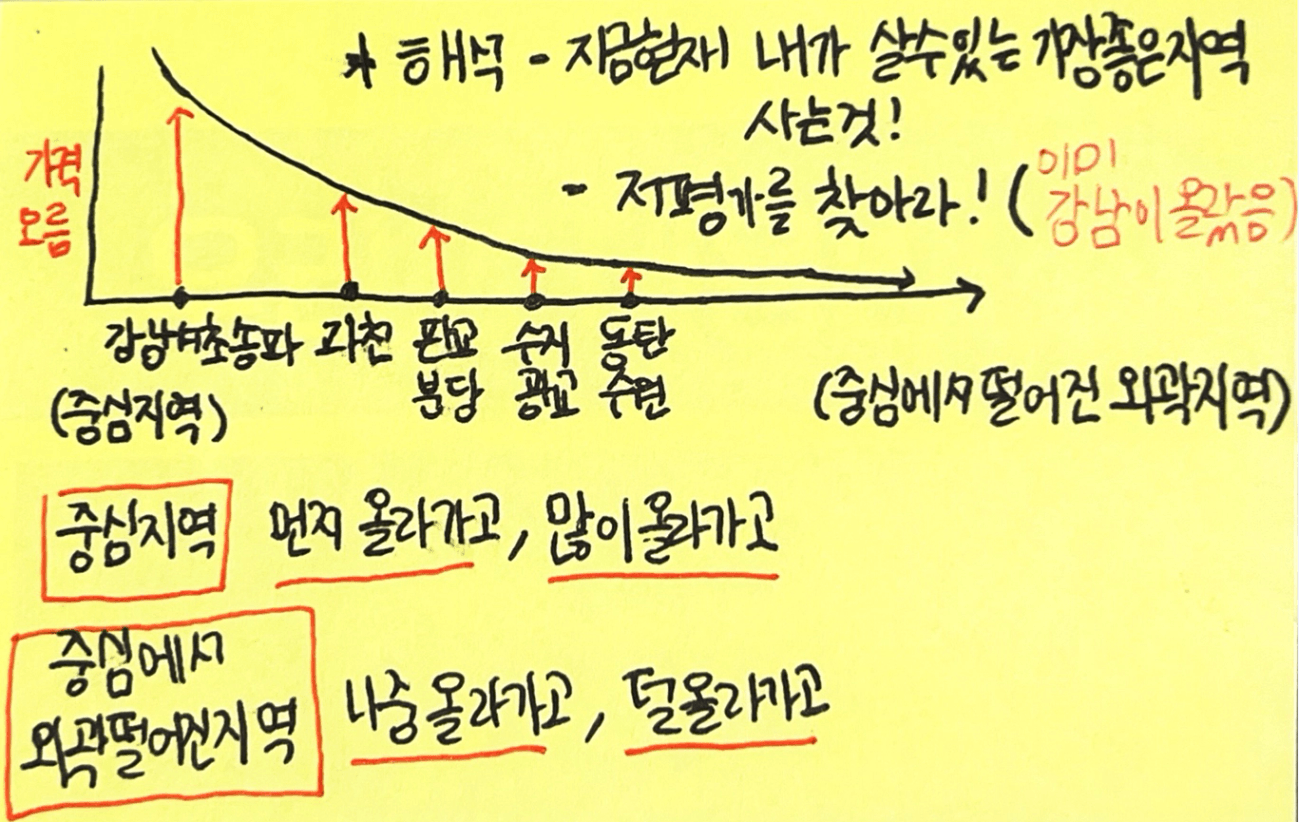 * 해석 - 지금현재 내가 살수있는 가장좋은지역
사는것!
- 저평가를 찾아라! (이미
강남이 올랐음)
가격
오름
강남서초송파 과천 판교 수지 동탄
분당 광교 수원
(중심지역) (중심에서 떨어진 외곽지역)
중심지역 먼저 올라가고, 많이올라가고
중심에서
외곽떨어진지역 나중올라가고, 덜올라가고